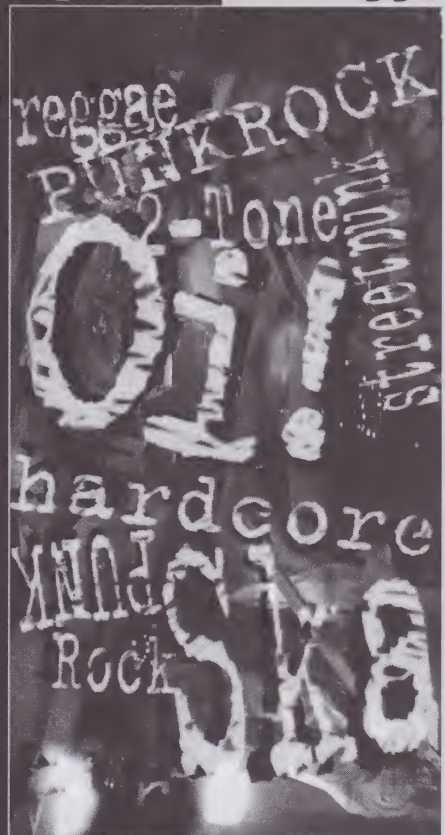 reggae
PUNKROCK
2-Tone
streetpunk
Oi!
hardcore
PUNK
Rock
Ska